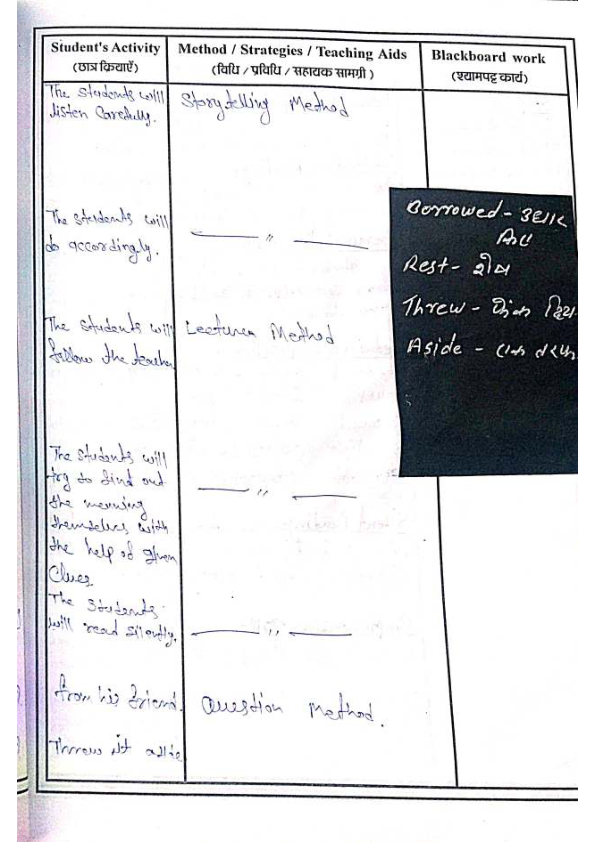 Student's Activity
(छात्र क्रियाएँ)
Method / Strategies / Teaching Aids
(विधि / प्रविधि / सहायक सामग्री)
Blackboard work
(श्यामपट्ट कार्य)
The Students will
listen Carefully.
Storytelling Method
The students will
do accordingly.
—〃—
The Students will
follow the teacher
Lecturer Method
Borrowed - उधार
लिए
Rest - शेष
Threw - फेंक दिया
Aside - एक तरफ
The Students will
try to find out
the meaning
themselves with
the help of given
Clues
—〃—
The Students
will read silently.
—〃—
from his friend.
Question Method.
Threw it aside